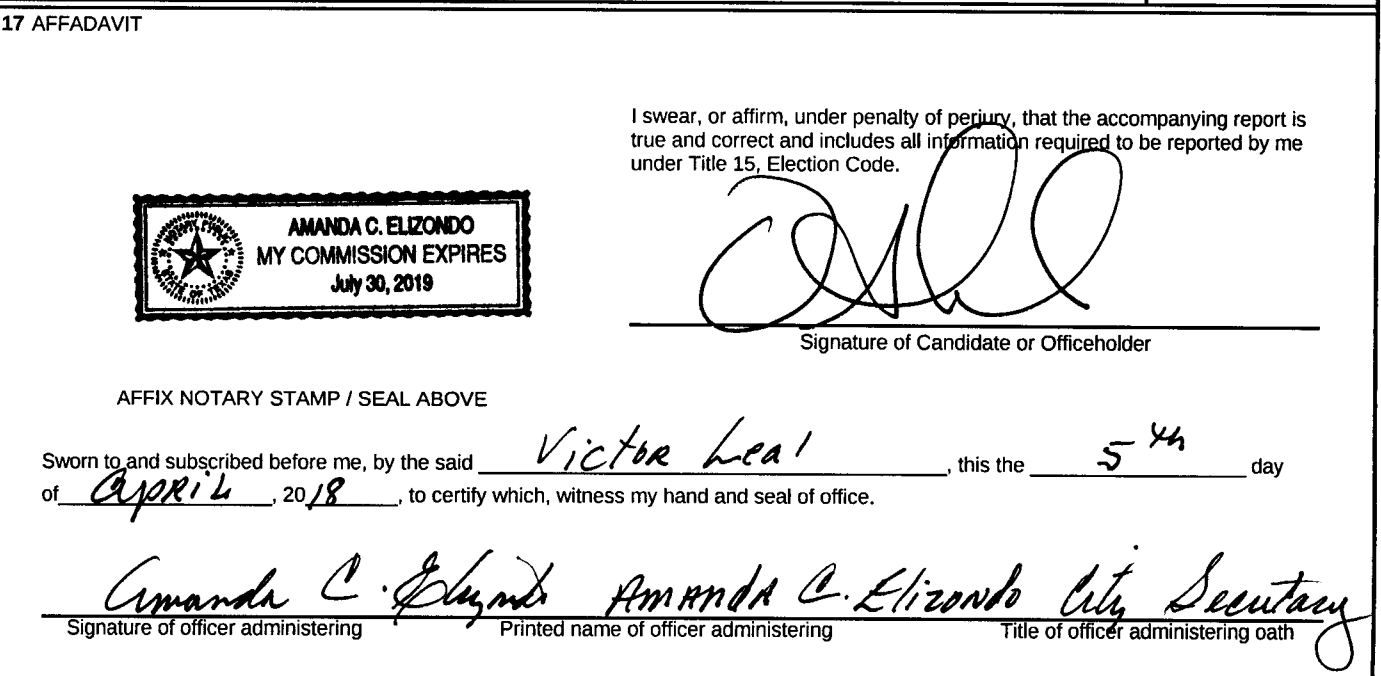 17 AFFADAVIT
I swear, or affirm, under penalty of perjury, that the accompanying report is
true and correct and includes all information required to be reported by me
under Title 15, Election Code.
NOTARY PUBLIC
STATE OF TEXAS
AMANDA C. ELIZONDO
MY COMMISSION EXPIRES
July 30, 2019
Signature of Candidate or Officeholder
AFFIX NOTARY STAMP / SEAL ABOVE
Sworn to and subscribed before me, by the said Victor Leal, this the 5th day
of April, 2018, to certify which, witness my hand and seal of office.
Amanda C. Elizondo AMANDA C. Elizondo City Secretary
Signature of officer administering Printed name of officer administering Title of officer administering oath